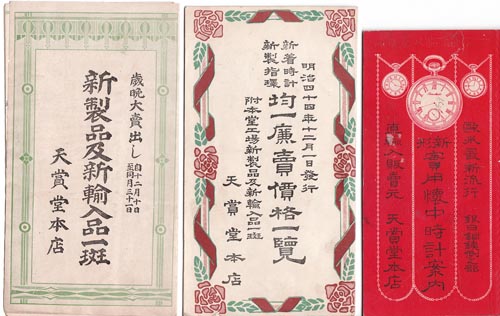 歳晩大賣出し
自十二月十日
至同月三十一日
新製品及新輸入品一斑
天賞堂本店
明治四十四年十二月一日発行
新着時計
新製指環
均一廉賣價格一覧
附本堂工場新製品及新輸入品一斑
天賞堂本店
歐米最新流行
新形
懐中時計案内
天賞堂本店